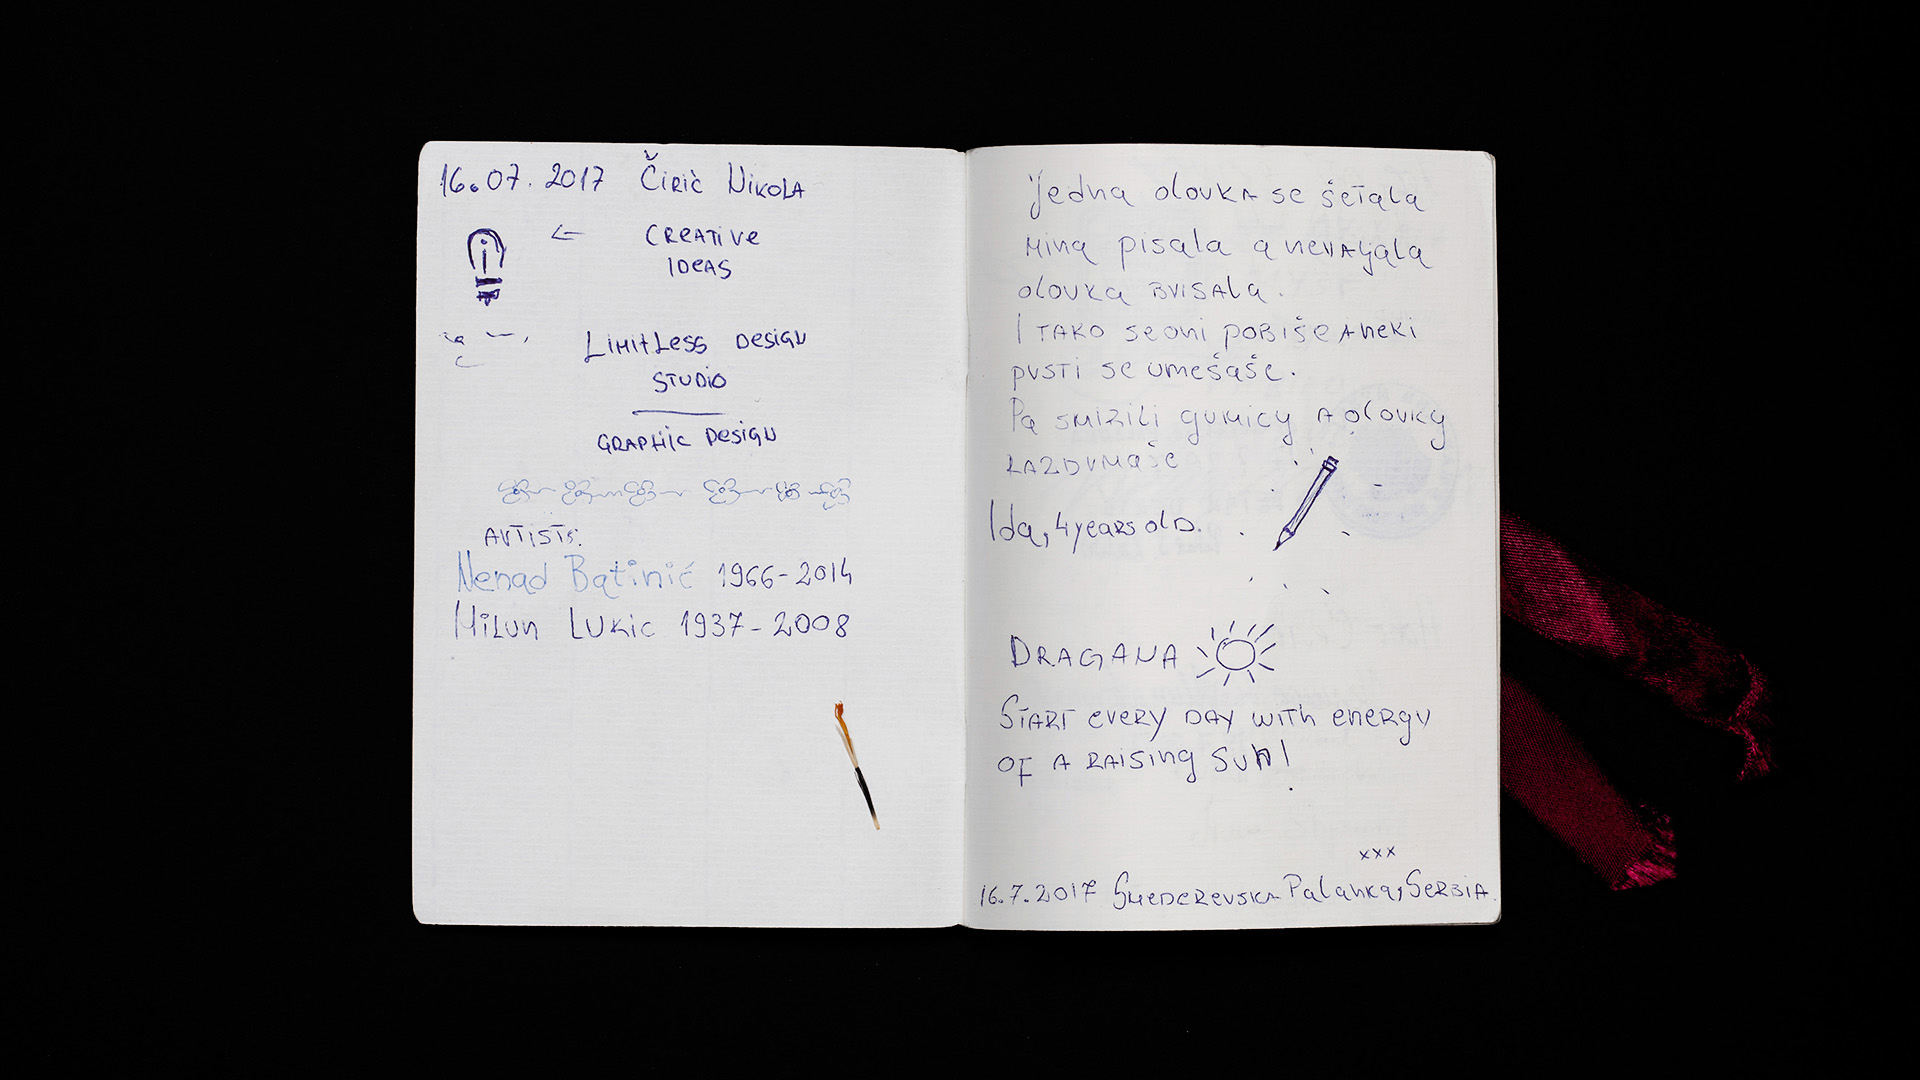 16.07.2017 Čirič Nikola
CREATIVE
IDEAS
LIMITLESS DESIGN
STUDIO
GRAPHIC DESIGN
ARTISTS:
Nenad Batinić 1966-2014
Milun Lukic 1937-2008
Jedna olovka se šetala
mina pisala a nevaljala
olovka brisala.
I TAKO se oni POBIŠE A neki
pusti se umešaše.
Pa smizili gumicy A olovky
RAZDUMAŠE
Ida, 4 years old.
DRAGANA
START every DAY with energy
OF A RAISING SUN!
xxx
16.7.2017 Smederevska Palanka, Serbia.